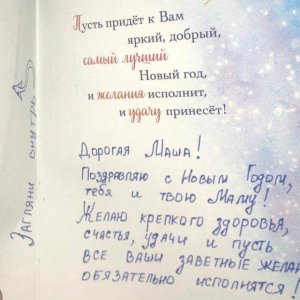 Пусть придёт к Вам
яркий, добрый,
самый лучший
Новый год,
и желания исполнит,
и удачу принесёт!
Дорогая Маша!
Поздравляю с Новым Годом,
тебя и твою Маму!
Желаю крепкого здоровья,
счастья, удачи и пусть
все ваши заветные желан
обязательно исполнятся!
Загляни внутрь